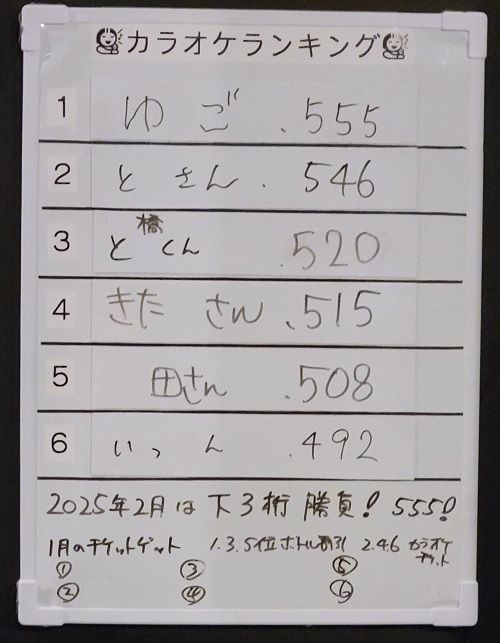 カラオケランキング
1 ゆ ご .555
2 と さん . 546
3 と橋くん .520
4 きた さん .515
5 田さん .508
6 いっ ん .492
2025年2月は下3桁勝負！555！
1月のチケットゲット 1.3.5位ボトル割引 2.4.6 カラオケチケット
① ③ ⑤
② ④ ⑥